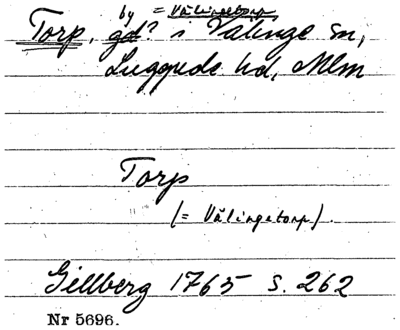 by = Välingetorp
Torp, gd? i Välinge sn,
Luggude hd, Mlm
Torp
(= Välingetorp).
Gillberg 1765 s. 262
Nr 5696.